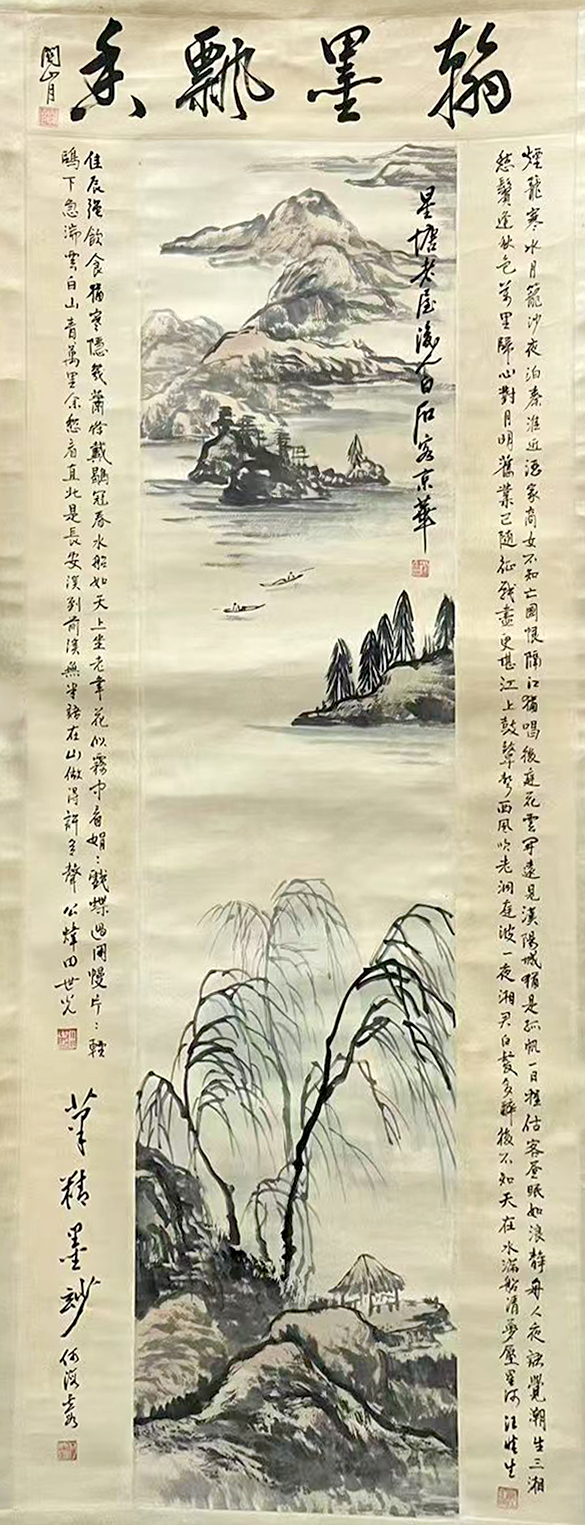 翰墨飄香
關山月
煙籠寒水月籠沙夜泊秦淮近酒家商女不知亡國恨隔江猶唱後庭花雲開遠見漢陽城猶是孤帆一日程估客晝眠如浪靜舟人夜語覺潮生三湘
愁鬢逢秋色萬里歸心對月明舊業已隨征戰盡更堪江上鼓鼙聲西風吹老洞庭波一夜湘君白髮多醉後不知天在水滿船清夢壓星河 汪慎生
星塘老屋後人白石客京華
佳辰強飲食猶寒隱几蕭條戴鶡冠春水船如天上坐老年花似霧中看娟〻戲蝶過閒幔片〻輕
鷗下急湍雲白山青萬里余愁看直北是長安溪到前溪無半語在山做得許多聲 公煒田世光
筆精墨妙
何海霞